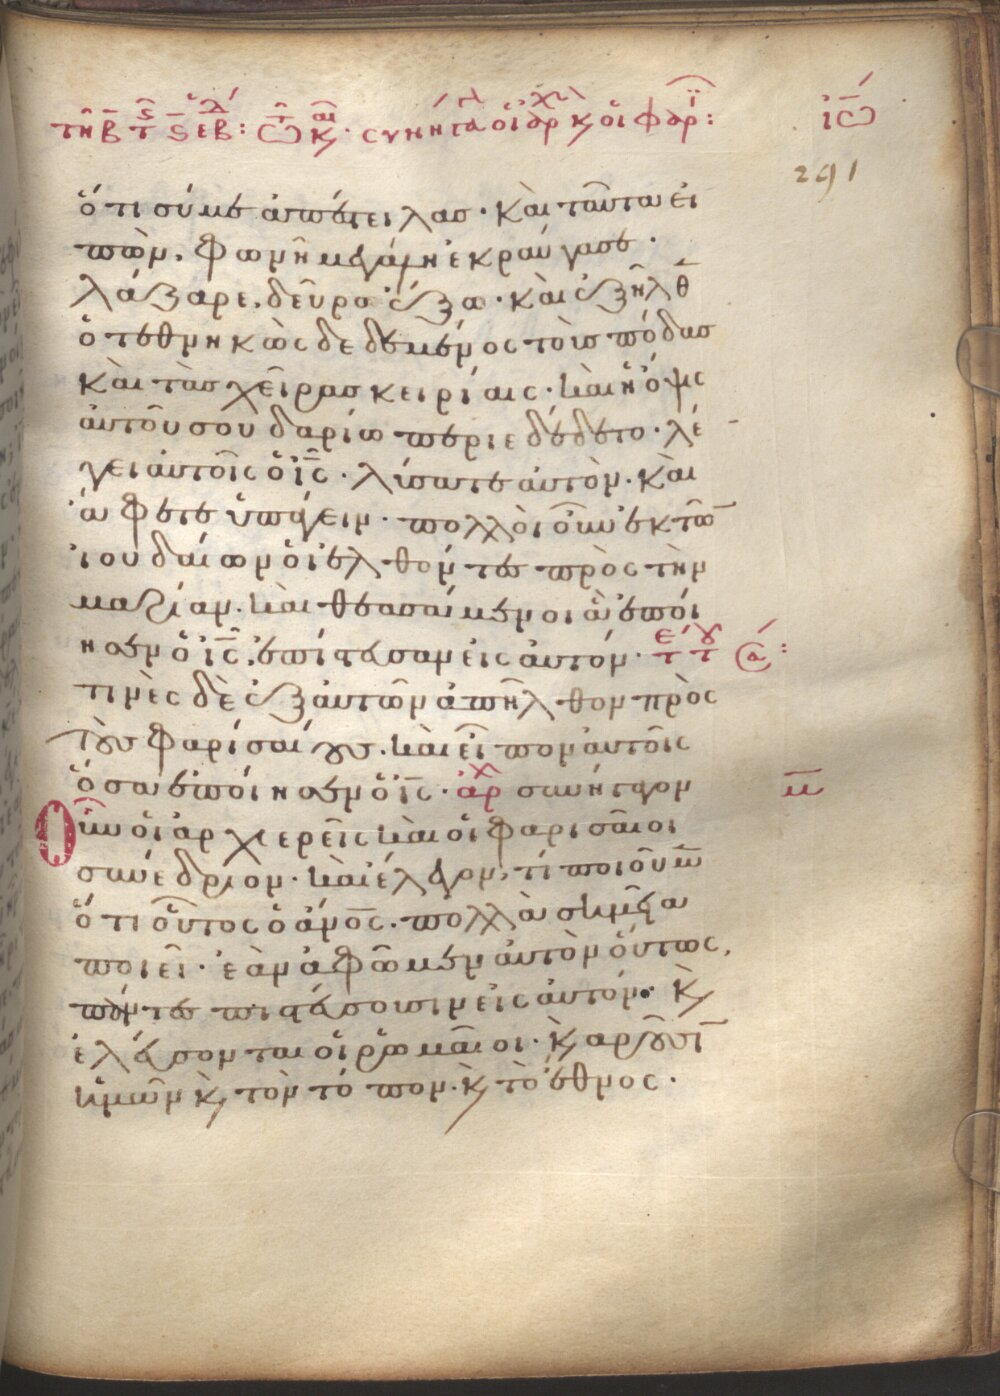 τῆ β τ ς ς εβδ : τ ω κ αι · συνήγα οἱ ἀρχ κ οἱ φαρι :
ἰω
291
ὅτι σύ με ἀπέστειλας · καὶ ταῦτα εἰ
πὼν, φωνῆ μεγάλη ἐκραύγασε ·
λάζαρε, δεῦρο ἔξω · καὶ ἐξῆλθ
ὁ τεθνηκὼς δεδεμένος τοὺς πόδας
καὶ τὰς χεῖρας κειρίαις · καὶ ἡ ὄψις
αὐτοῦ σουδαρίω περιεδέδετο · λέ
γει αὐτοῖς ὁ ἰς · λύσατε αὐτὸν · καὶ
ἄφετε ὑπάγειν · πολλοὶ οὖν ἐκ τῶ
ἰουδαίων οἱ ἐλθόντες πρὸς τὴν
μαρίαν · καὶ θεασάμενοι ἃ ἐποί
ησεν ὁ ἰς, ἐπίστευσαν εἰς αὐτόν · τε τ α :
τινὲς δὲ ἐξ αὐτῶν ἀπῆλθον πρὸς
τοὺς φαρισαίους · καὶ εἶπον αὐτοῖς
ὅσα ἐποίησεν ὁ ἰς · ἀρχ συνήγαγον
μ
οὖν οἱ ἀρχιερεῖς καὶ οἱ φαρισαῖοι
συνέδριον · καὶ ἔλεγον, τί ποιοῦμ
ὅτι οὗτος ὁ ἄνος · πολλὰ σημεῖα
ποιεῖ · ἐὰν ἀφῶμεν αὐτὸν οὕτως,
πάντες πιστεύσουσιν εἰς αὐτόν · κ
ἐλεύσονται οἱ ῥωμαῖοι · κ ἀροῦσι
ἡμῶν κ τὸν τόπον · κ τὸ ἔθνος ·